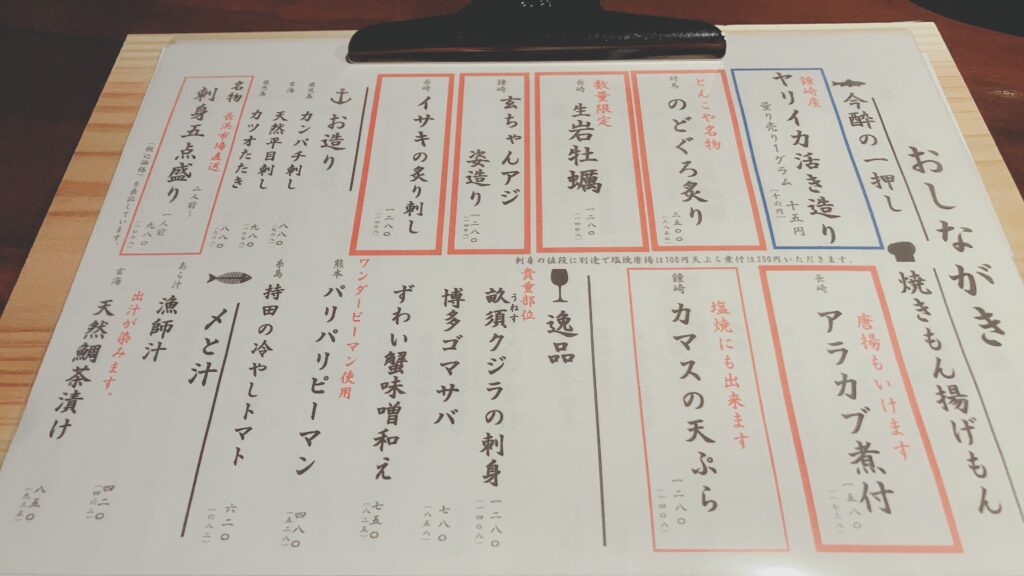 おしながき
今酔の一押し
鐘崎産
ヤリイカ活き造り
量り売り一グラム 十五円
(十六円)
とんこや名物
対馬
のどぐろ炙り
三五〇〇
(三八五〇)
数量限定
長崎
生岩牡蠣
一二八〇
(一四〇八)
鐘崎
玄ちゃんアジ
姿造り
一二八〇
(一四〇八)
長崎
イサキの炙り刺し
お造り
鹿児島
カンパチ刺し
八八〇
玄海
天然平目刺し
九八〇
鹿児島
カツオたたき
八八〇
名物
長浜市場直送
刺身五点盛り
二人前〜
一人前
九八〇
(税込価格)を表記しています。
刺身の値段に別途で塩焼唐揚は100円天ぷら煮付は200円いただきます。
焼きもん揚げもん
唐揚もいけます
長崎
アラカブ煮付
一五八〇
(一七三八)
塩焼にも出来ます
鐘崎
カマスの天ぷら
一二八〇
(一四〇八)
逸品
貴重部位
うねす
畝須クジラの刺身
一二八〇
(一四〇八)
博多ゴマサバ
七八〇
(八五八)
ずわい蟹味噌和え
七五〇
(八二五)
ワンダーピーマン使用
熊本
パリパリピーマン
四八〇
(五二八)
糸島
持田の冷やしトマト
六二〇
(六八二)
〆と汁
あら汁
漁師汁
四二〇
(四六二)
出汁が染みます。
玄海
天然鯛茶漬け
八五〇
(九三五)